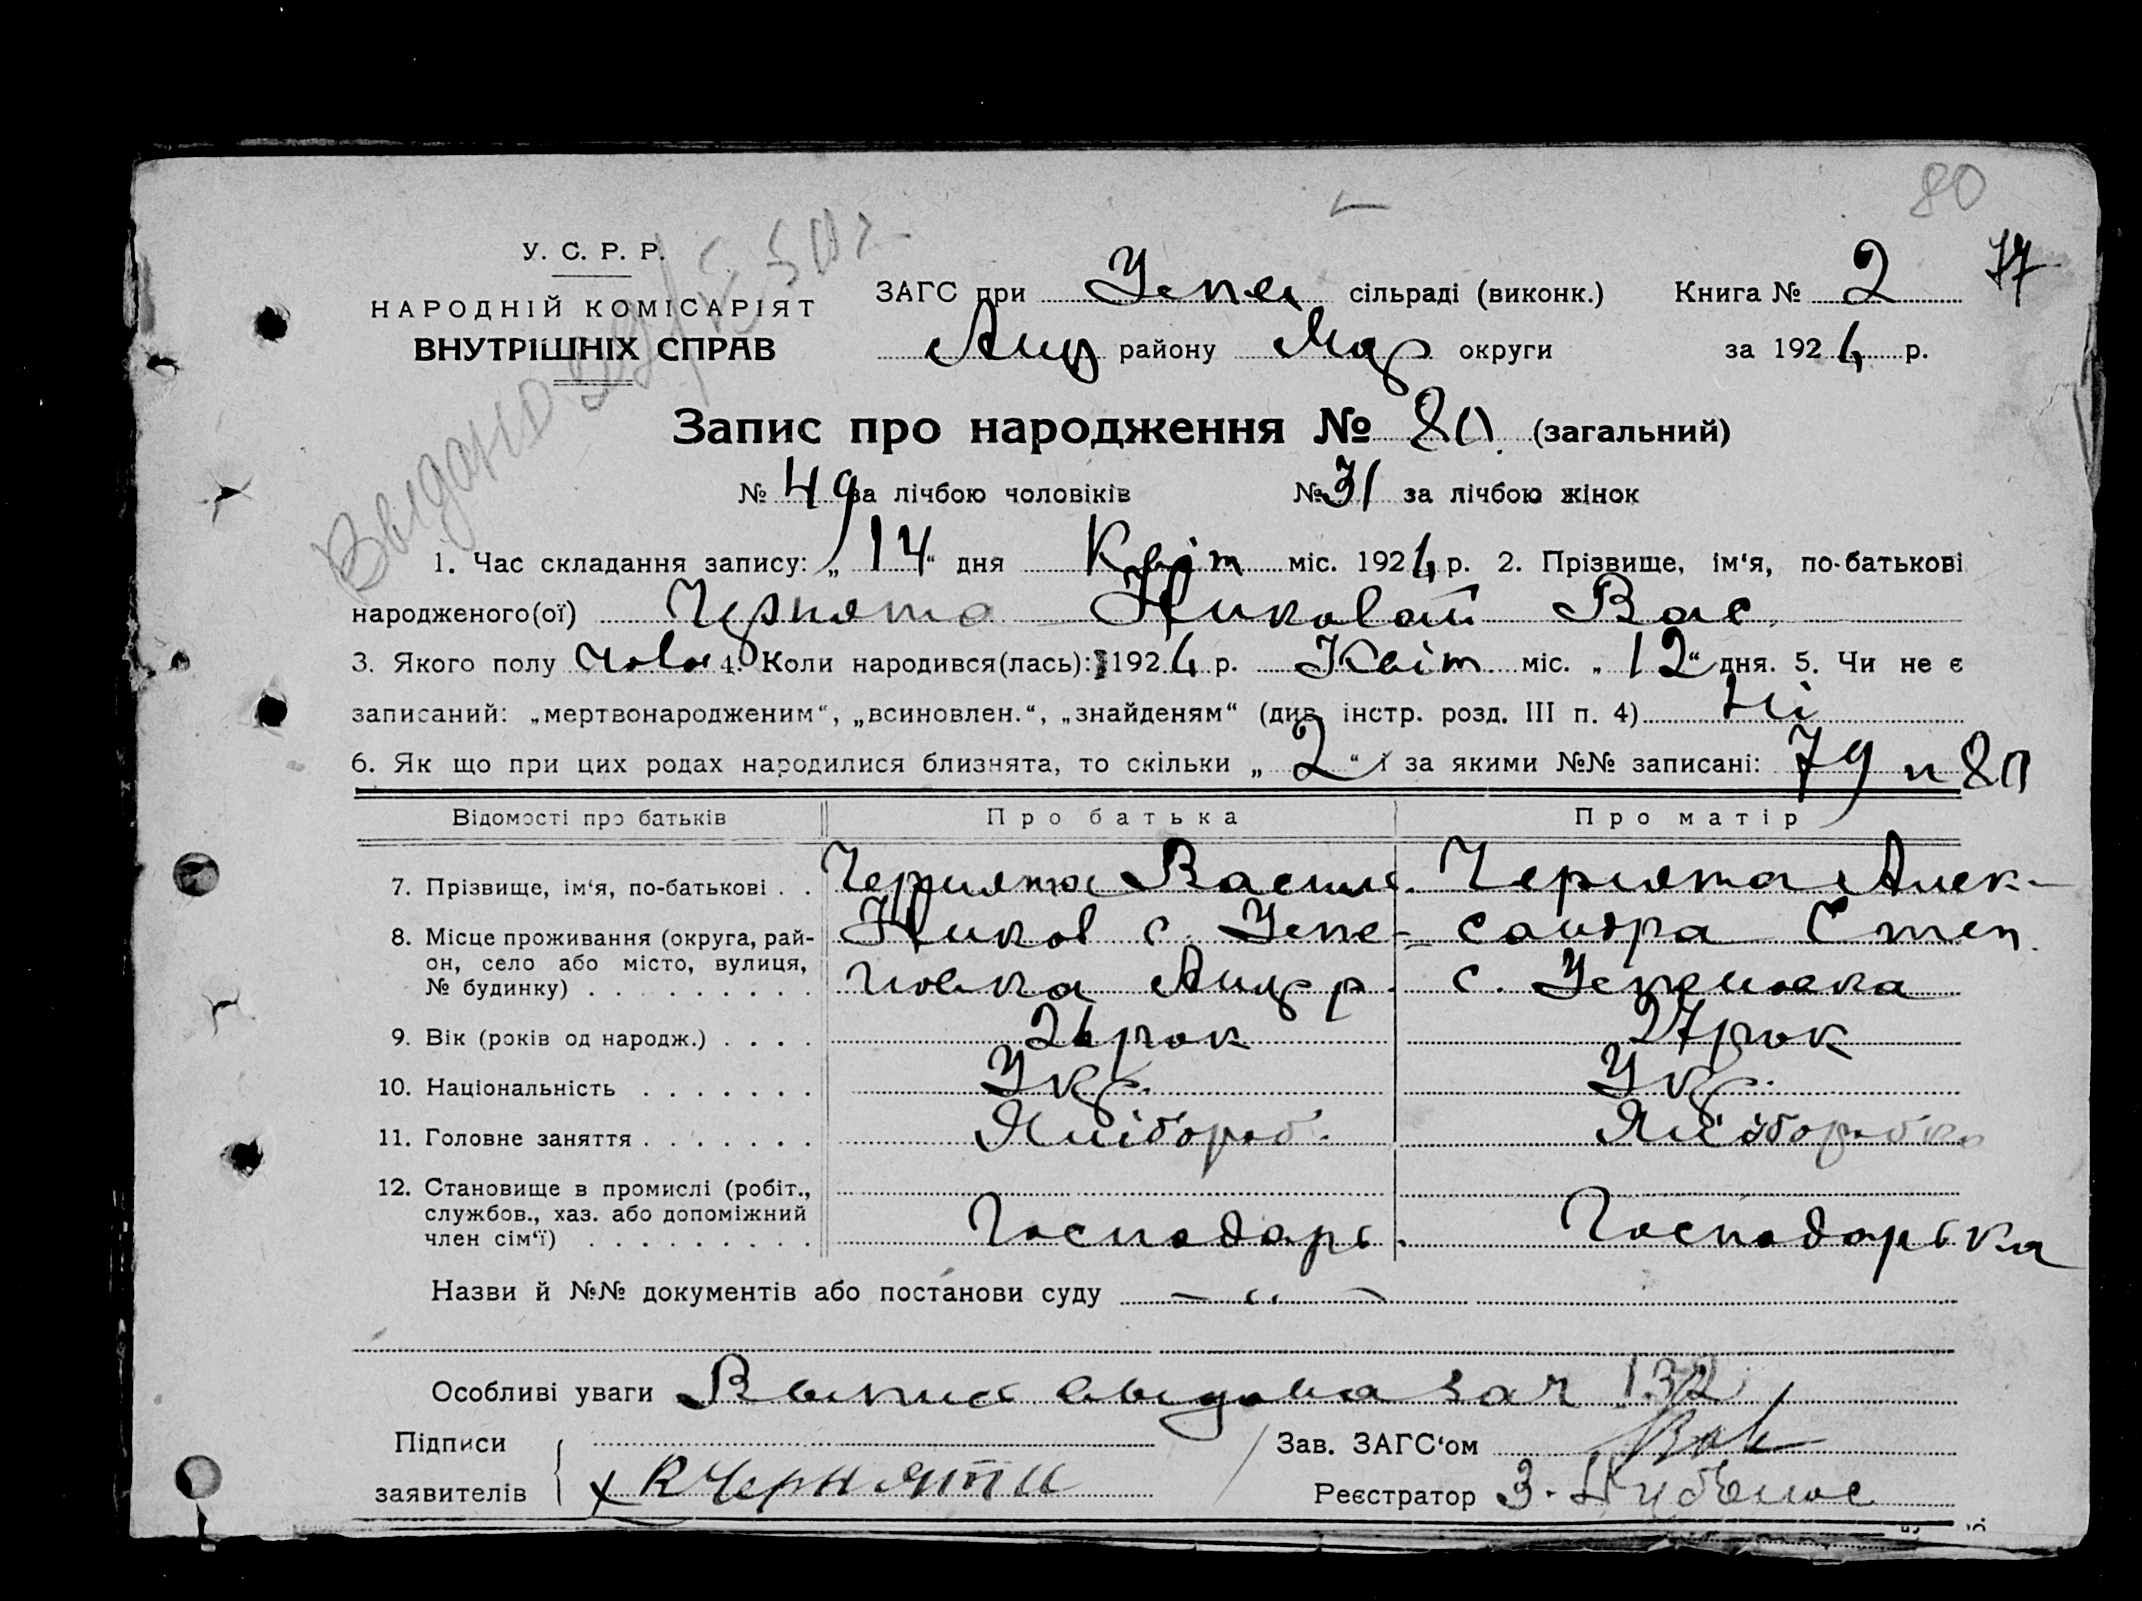 80
77
У. С. Р. Р.
НАРОДНІЙ КОМІСАРІЯТ
ВНУТРІШНІХ СПРАВ
ЗАГС при Успен сільраді (виконк.) Книга № 2
Анд району Мар округи за 1924 р.
Запис про народження № 80 (загальний)
№ 49 за лічбою чоловіків № 31 за лічбою жінок
Выдано
1. Час складання запису: „14“ дня Квіт міс. 1924 р. 2. Прізвище, ім‘я, по-батькові
народженого(ої) Чернята Николай Вас.
3. Якого полу Чолов 4. Коли народився(лась): 1924 р. Квіт міс. „12“ дня. 5. Чи не є
записаний: „мертвонародженим“, „всиновлен.“, „знайденям“ (див. інстр. розд. III п. 4) Ні
6. Як що при цих родах народилися близнята, то скільки „2“ і за якими №№ записані: 79 и 80
Відомості про батьків Про батька Про матір
7. Прізвище, ім‘я, по-батькові . . Чернята Васил. Чернята Алек-
8. Місце проживання (округа, рай- Никол с. Успе- сандра Степ.
он, село або місто, вулиця, новка Андр р. с. Успеновка
№ будинку) . . . . . . . . .
9. Вік (років од народж.) . . . . рок 27 рок
10. Національність . . . . . . . Укр. Укр.
11. Головне заняття . . . . . . . Хлібороб. Хліборобка
12. Становище в промислі (робіт.,
службов., хаз. або допоміжний Господарь. Господарька
член сім‘ї) . . . . . . . . .
Назви й №№ документів або постанови суду — „ —
Особливі уваги Выпис выдана за ч 132
Підписи Зав. ЗАГС‘ом
заявителів х В Черняти Реєстратор З.